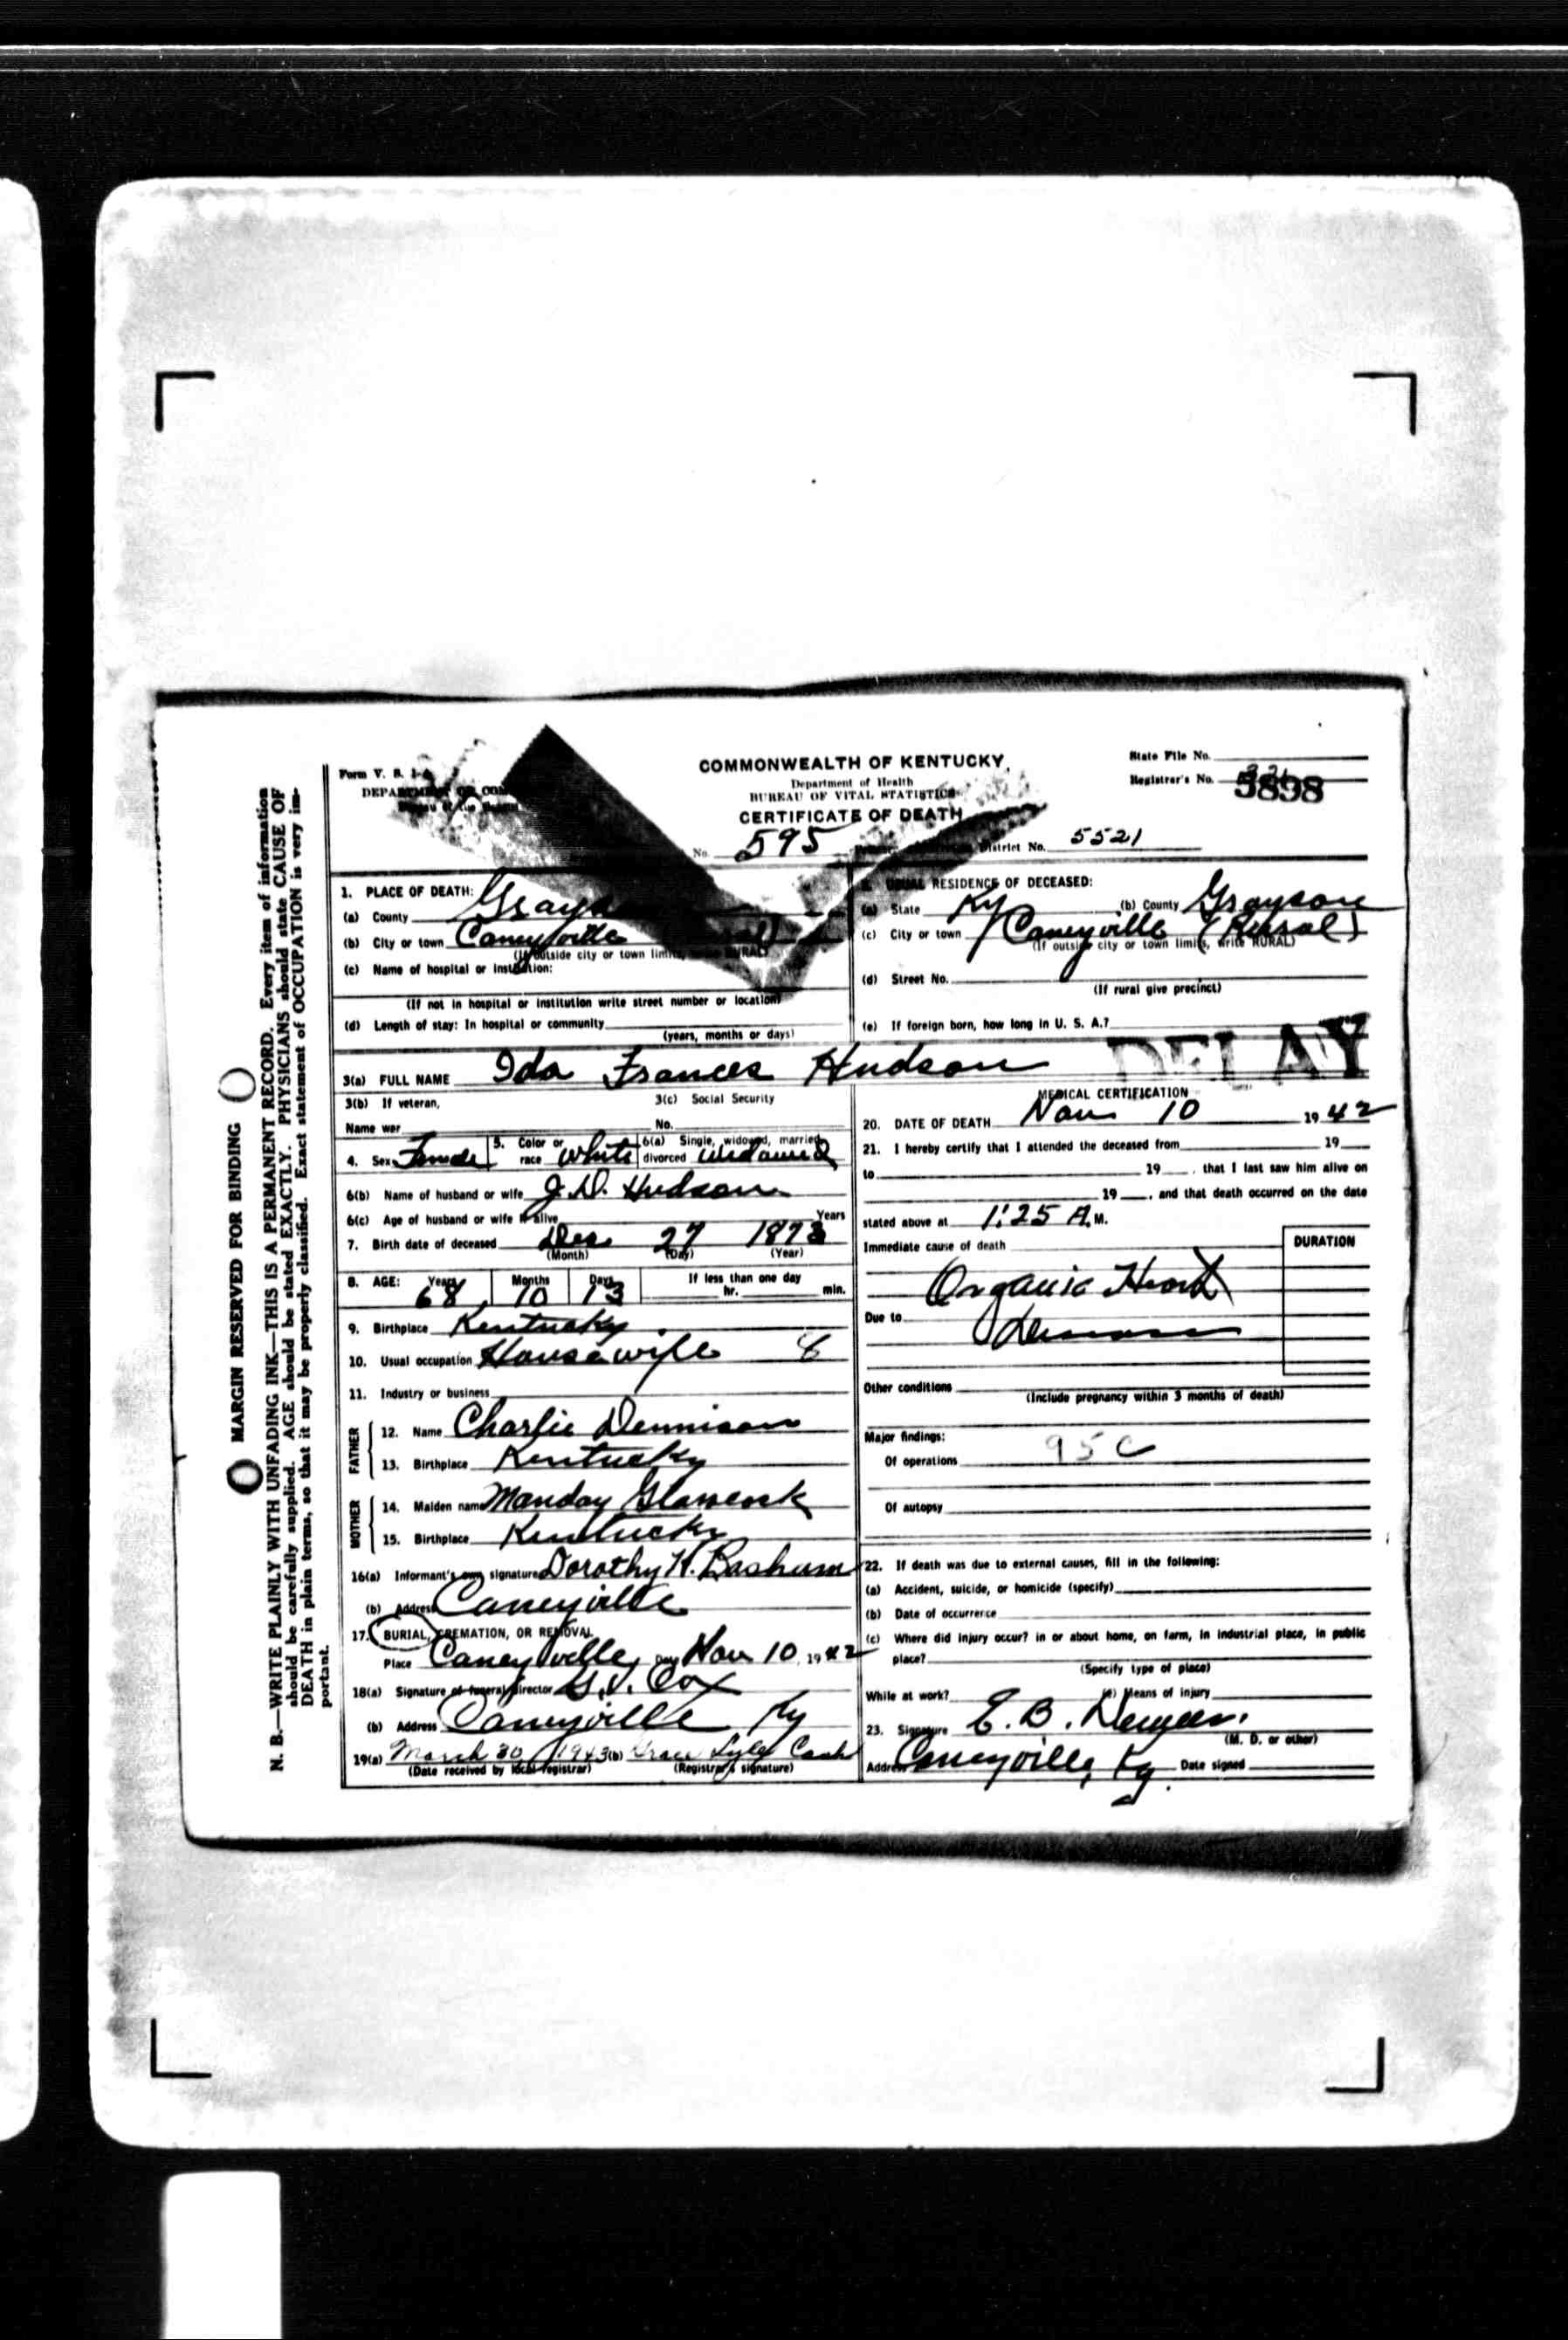 Form V. S. 1-A
COMMONWEALTH OF KENTUCKY
Department of Health
BUREAU OF VITAL STATISTICS
CERTIFICATE OF DEATH
State File No.
Registrar's No. 5898
No. 595
District No. 5521
MARGIN RESERVED FOR BINDING
N. B.—WRITE PLAINLY WITH UNFADING INK—THIS IS A PERMANENT RECORD. Every item of information
should be carefully supplied. AGE should be stated EXACTLY. PHYSICIANS should state CAUSE OF
DEATH in plain terms, so that it may be properly classified. Exact statement of OCCUPATION is very im-
portant.
1. PLACE OF DEATH:
(a) County
(b) City or town Caneyville
(If outside city or town limits, write RURAL)
(c) Name of hospital or institution:
(If not in hospital or institution write street number or location)
(d) Length of stay: In hospital or community
(years, months or days)
2. USUAL RESIDENCE OF DECEASED:
(a) State Ky (b) County Grayson
(c) City or town Caneyville (Rural)
(If outside city or town limits, write RURAL)
(d) Street No.
(If rural give precinct)
(e) If foreign born, how long in U. S. A.?
DELAY
3(a) FULL NAME Ida Frances Hudson
3(b) If veteran,
Name war
3(c) Social Security
No.
4. Sex Female 5. Color or race White 6(a) Single, widowed, married, divorced widowed
6(b) Name of husband or wife J. D. Hudson
6(c) Age of husband or wife if alive Years
7. Birth date of deceased Dec 27 1873
(Month) (Day) (Year)
8. AGE: Years 68 Months 10 Days 13 If less than one day hr. min.
9. Birthplace Kentucky
10. Usual occupation Housewife 8
11. Industry or business
FATHER
12. Name Charlie Dennison
13. Birthplace Kentucky
MOTHER
14. Maiden name Manday
15. Birthplace Kentucky
16(a) Informant's own signature Dorothy H. Basham
(b) Address Caneyville
17. BURIAL, CREMATION, OR REMOVAL
Place Caneyville, Day Nov 10, 1942
18(a) Signature of funeral director G. V. Cox
(b) Address Caneyville Ky
19(a) March 30, 1943 (b) Grace Lyles Cash
(Date received by local registrar) (Registrar's signature)
MEDICAL CERTIFICATION
20. DATE OF DEATH Nov 10 1942
21. I hereby certify that I attended the deceased from 19
to 19 , that I last saw him alive on
19 , and that death occurred on the date
stated above at 1:25 A. M.
Immediate cause of death
DURATION
Organic Heart
Due to
Other conditions
(Include pregnancy within 3 months of death)
Major findings:
Of operations 95c
Of autopsy
22. If death was due to external causes, fill in the following:
(a) Accident, suicide, or homicide (specify)
(b) Date of occurrence
(c) Where did injury occur? in or about home, on farm, in industrial place, in public
place?
(Specify type of place)
While at work? (e) Means of injury
23. Signature E. B.
(M. D. or other)
Address Caneyville, Ky. Date signed